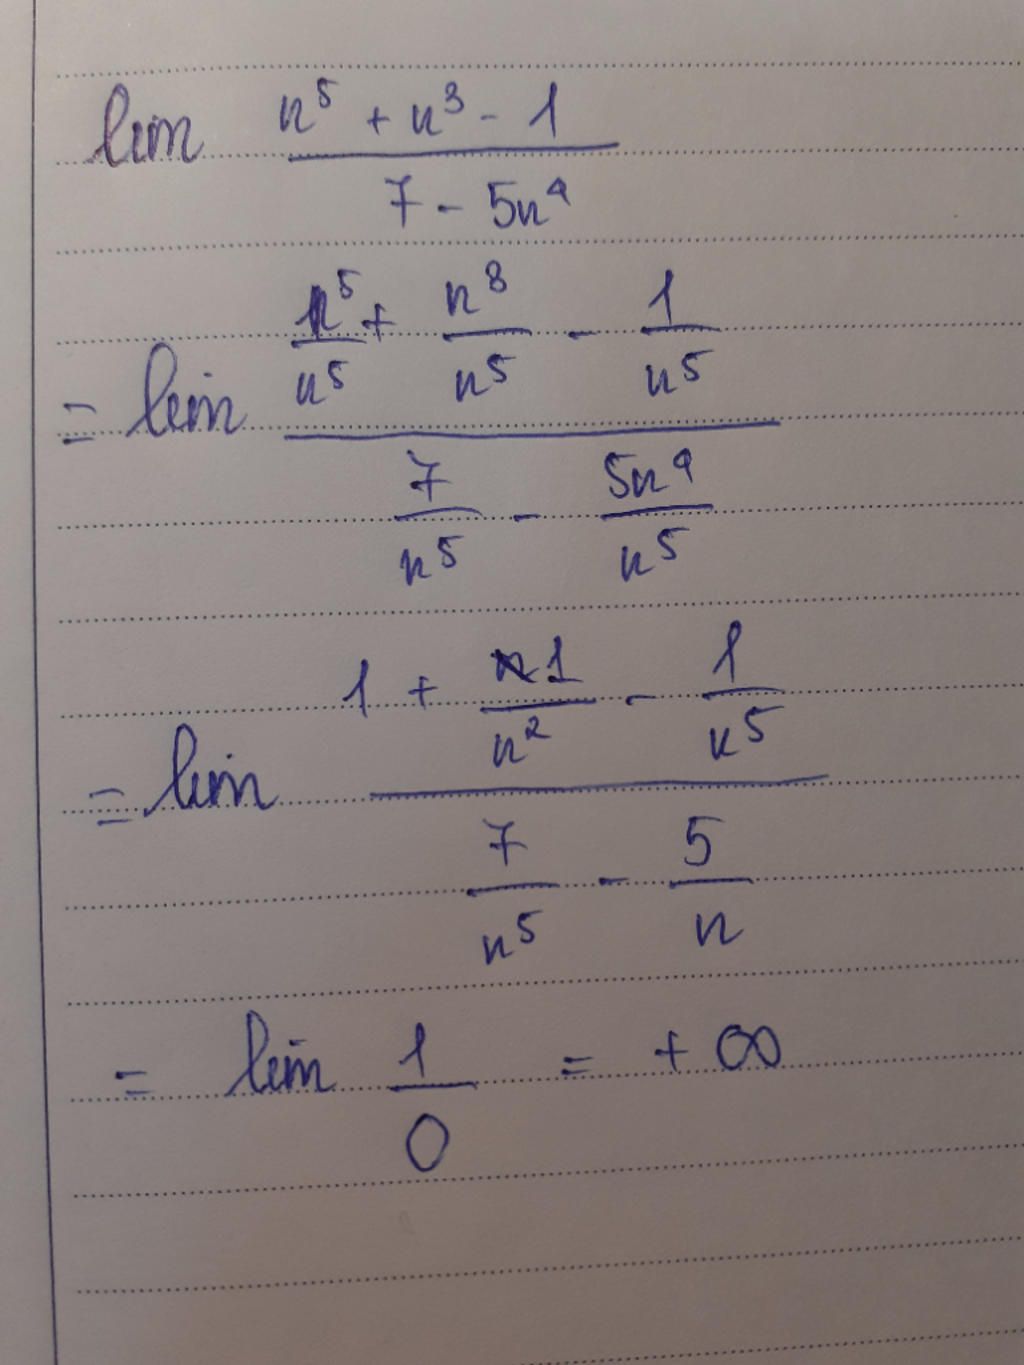 lim (n⁵ + n³ - 1) / (7 - 5n⁴)
= lim (n⁵/n⁵ + n³/n⁵ - 1/n⁵) / (7/n⁵ - 5n⁴/n⁵)
= lim (1 + 1/n² - 1/n⁵) / (7/n⁵ - 5/n)
= lim 1/0 = +∞